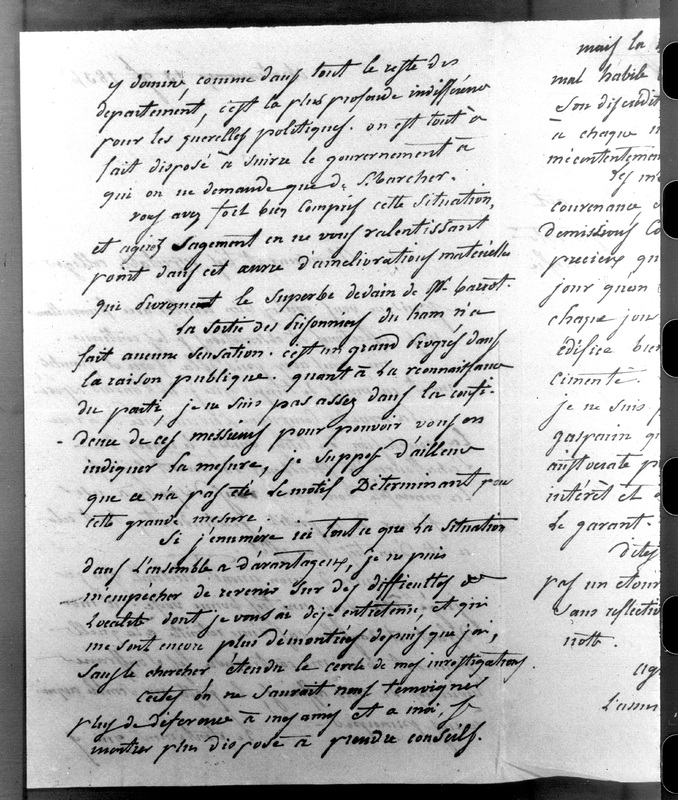 y domine, comme dans tout le reste des
departement, c'est la plus profonde indifférence
pour les querelles politiques. on est tout à
fait disposé à suivre le gouvernement à
qui on ne demande que de marcher.
vous avez fort bien compris cette situation,
et agirez sagement en ne vous ralentissant
point dans cet œuvre d'améliorations matérielles
que le superbe dedain de Mr barrot.
La sortie des prisonniers du ham n'a
fait aucune sensation. c'est un grand progrès dans
la raison publique. quant à la reconnaissance
du parti, je ne suis pas assez dans la confi-
dence de ces messieurs pour pouvoir vous en
indiquer la mesure, je suppose d'ailleurs
que ce n'a pas eté le motif Déterminant pour
cette grande mesure.
Si j'enumère ici tout ce que la situation
dans l'ensemble a d'avantageux, je ne puis
m'empêcher de revenir sur des difficultes de
Localité dont je vous ai déjà entretenu, et qui
me sont encore plus démontrées depuis que j'ai,
sans le chercher étendu le cercle de mes investigations.
Certes on ne sauroit nous témoigner
plus de déference à mes amis et a moi, se
montrer plus disposé à prendre conseils.
mais la
mal habile
Son discrédit
à chaque
mécontentement
des
couvenance
Demissions
precieux
jour quon
chaque jour
édifice bien
cimenté.
je ne suis
gasparin
aristocrate
interêt et
Le garant.
Dites
pas un
sans reflection
nott.